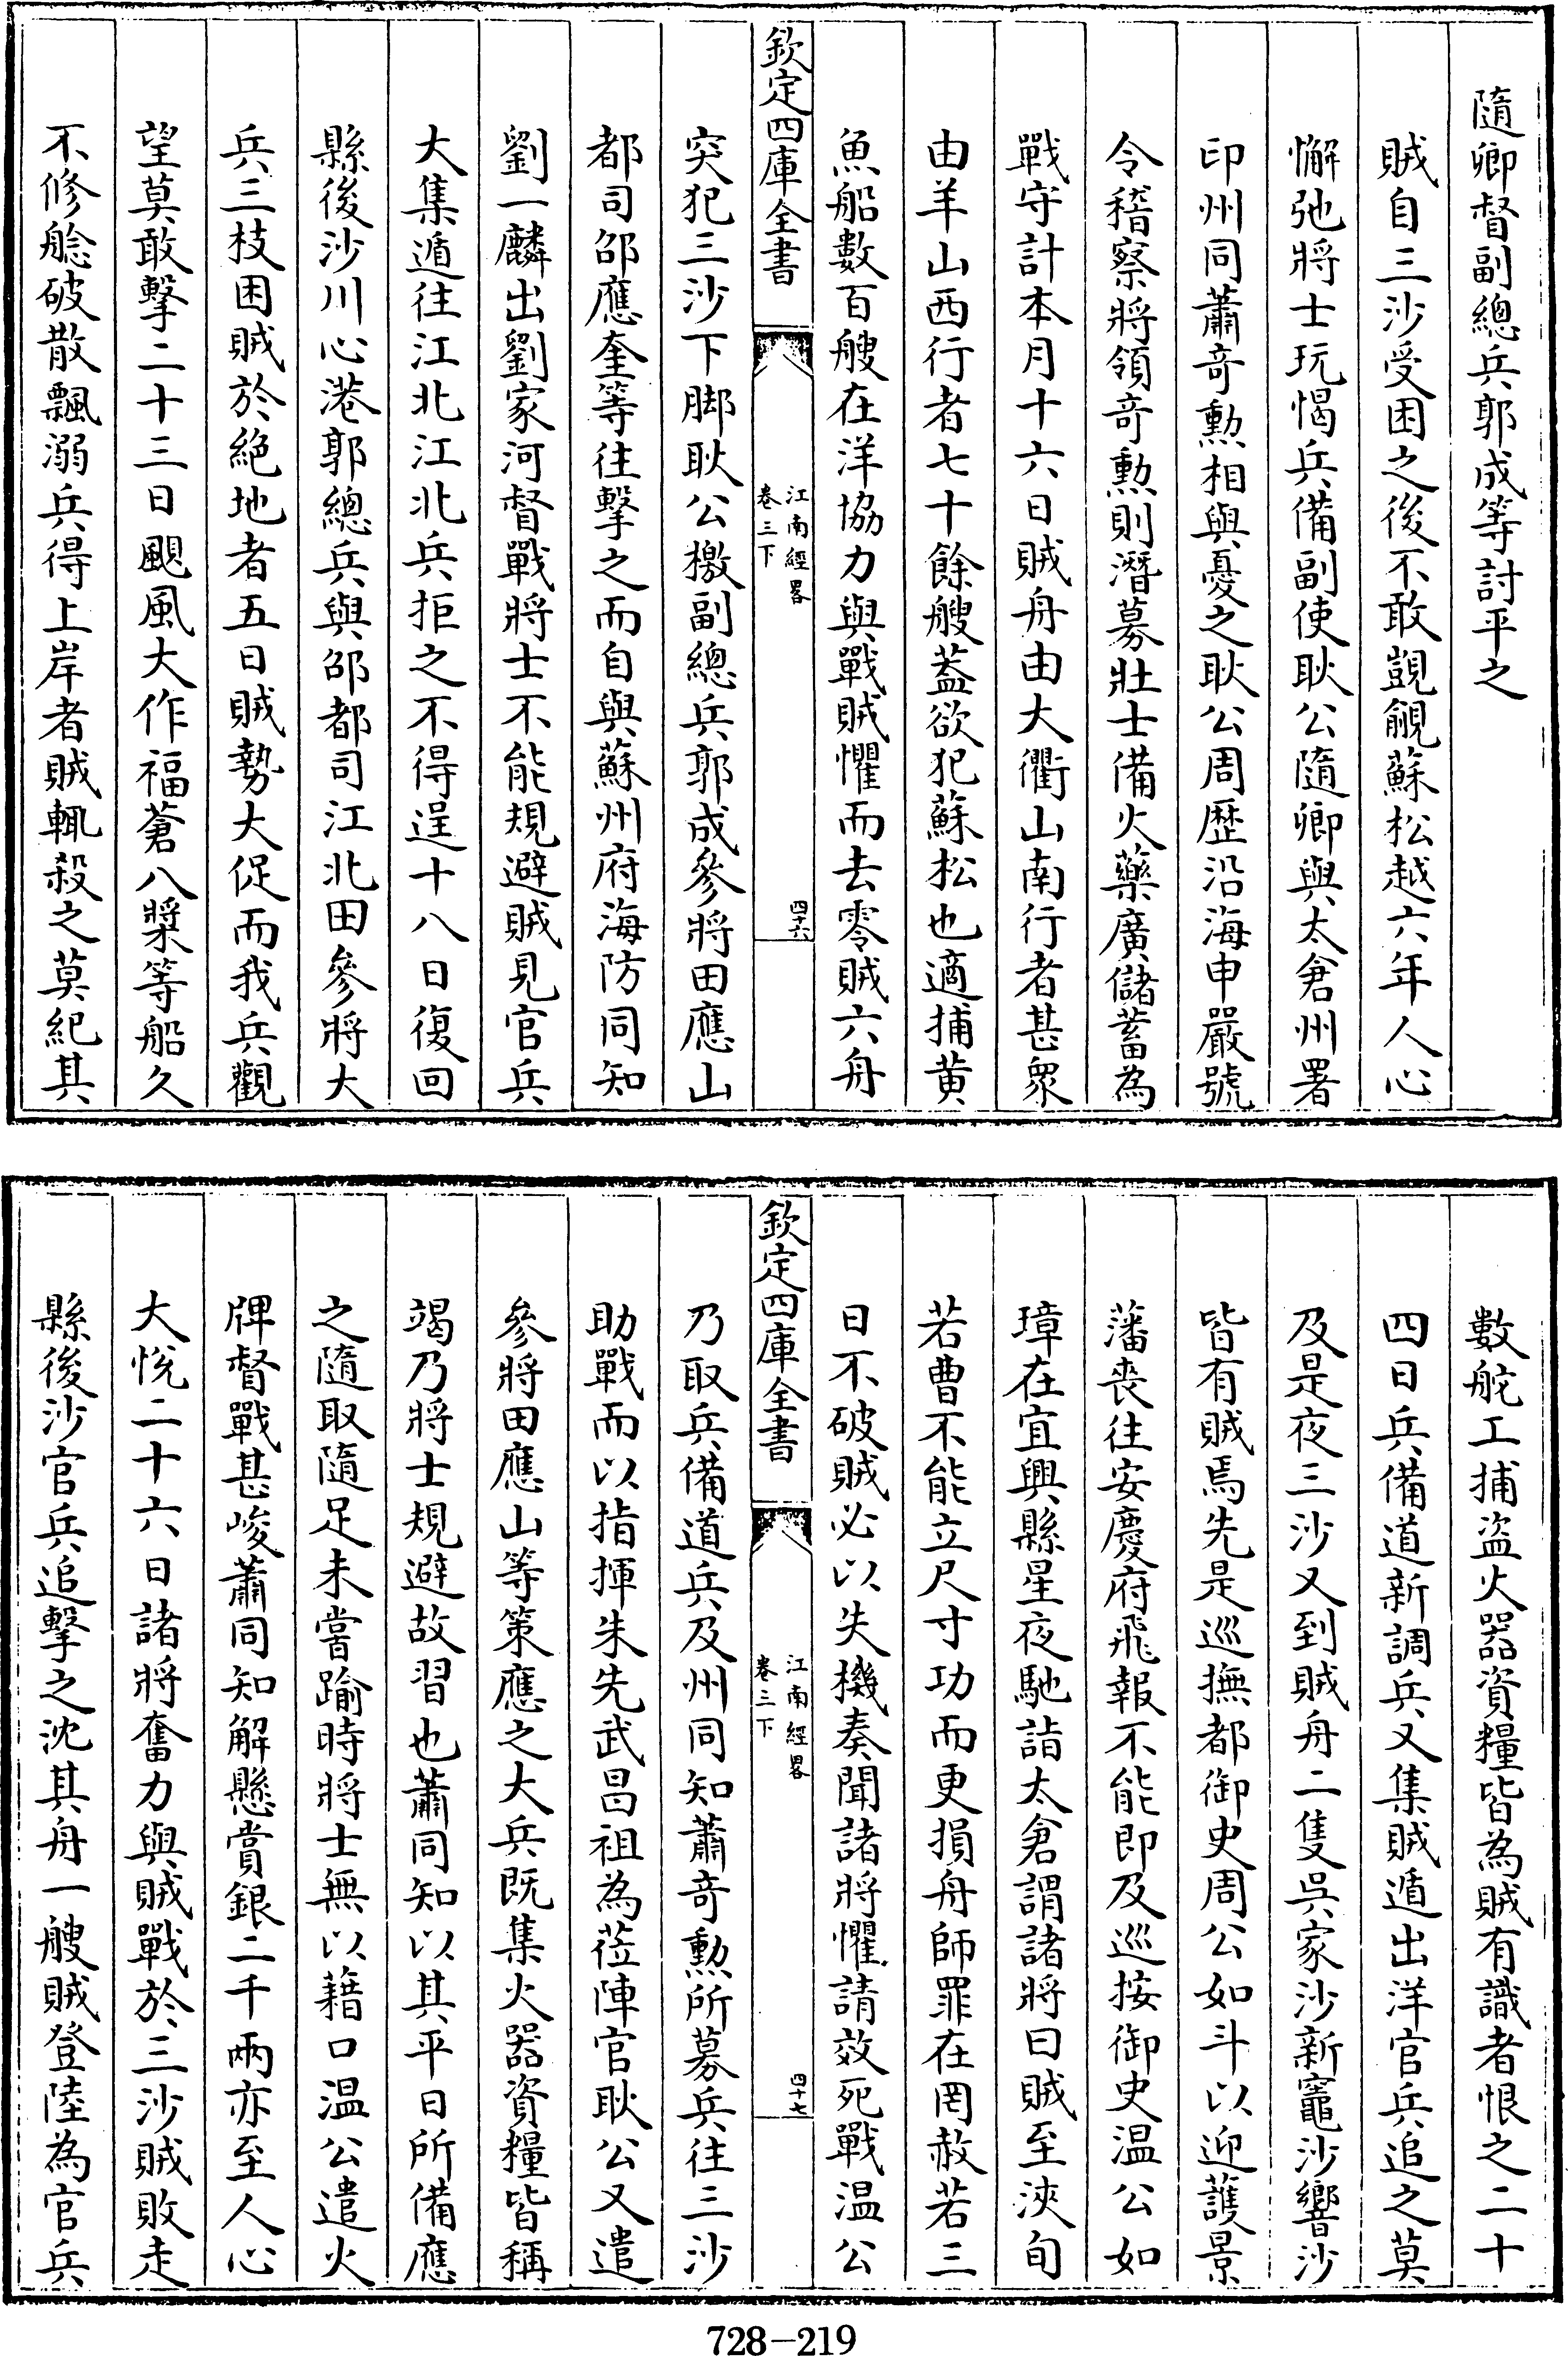 隨卿督副總兵郭成等討平之
賊自三沙受困之後不敢覬覦蘇松越六年人心
懈弛將士玩愒兵備副使耿公隨卿與太倉州署
印州同蕭竒勲相與憂之耿公周歴沿海申嚴號
令稽察將領竒勲則潛募壯士備火藥廣儲蓄為
戰守計本月十六日賊舟由大衢山南行者甚衆
由羊山西行者七十餘艘蓋欲犯蘇松也適捕黄
魚船數百艘在洋協力與戰賊懼而去零賊六舟
欽定四庫全書
江南經畧
卷三下
四十六
突犯三沙下脚耿公檄副總兵郭成參將田應山
都司邵應奎等往擊之而自與蘇州府海防同知
劉一麟出劉家河督戰將士不能規避賊見官兵
大集遁往江北江北兵拒之不得逞十八日復回
縣後沙川心港郭總兵與邵都司江北田參將大
兵三枝困賊於絶地者五日賊勢大促而我兵觀
望莫敢擊二十三日颶風大作福蒼八槳等船久
不修艌破散飄溺兵得上岸者賊輒殺之莫紀其
數舵工捕盜火器資糧皆為賊有識者恨之二十
四日兵備道新調兵又集賊遁出洋官兵追之莫
及是夜三沙又到賊舟二隻吳家沙新竈沙響沙
皆有賊焉先是巡撫都御史周公如斗以迎護景
藩喪往安慶府飛報不能即及巡按御史温公如
璋在宜興縣星夜馳詣太倉謂諸將曰賊至浹旬
若曹不能立尺寸功而更損舟師罪在罔赦若三
日不破賊必以失機奏聞諸將懼請效死戰温公
欽定四庫全書
江南經畧
卷三下
四十七
乃取兵備道兵及州同知蕭竒勲所募兵往三沙
助戰而以指揮朱先武昌祖為莅陣官耿公又遣
參將田應山等策應之大兵既集火器資糧皆稱
竭乃將士規避故習也蕭同知以其平日所備應
之隨取隨足未嘗踰時將士無以藉口温公遣火
牌督戰甚峻蕭同知解懸賞銀二千兩亦至人心
大悅二十六日諸將奮力與賊戰於三沙賊敗走
縣後沙官兵追擊之沈其舟一艘賊登陸為官兵
728-219